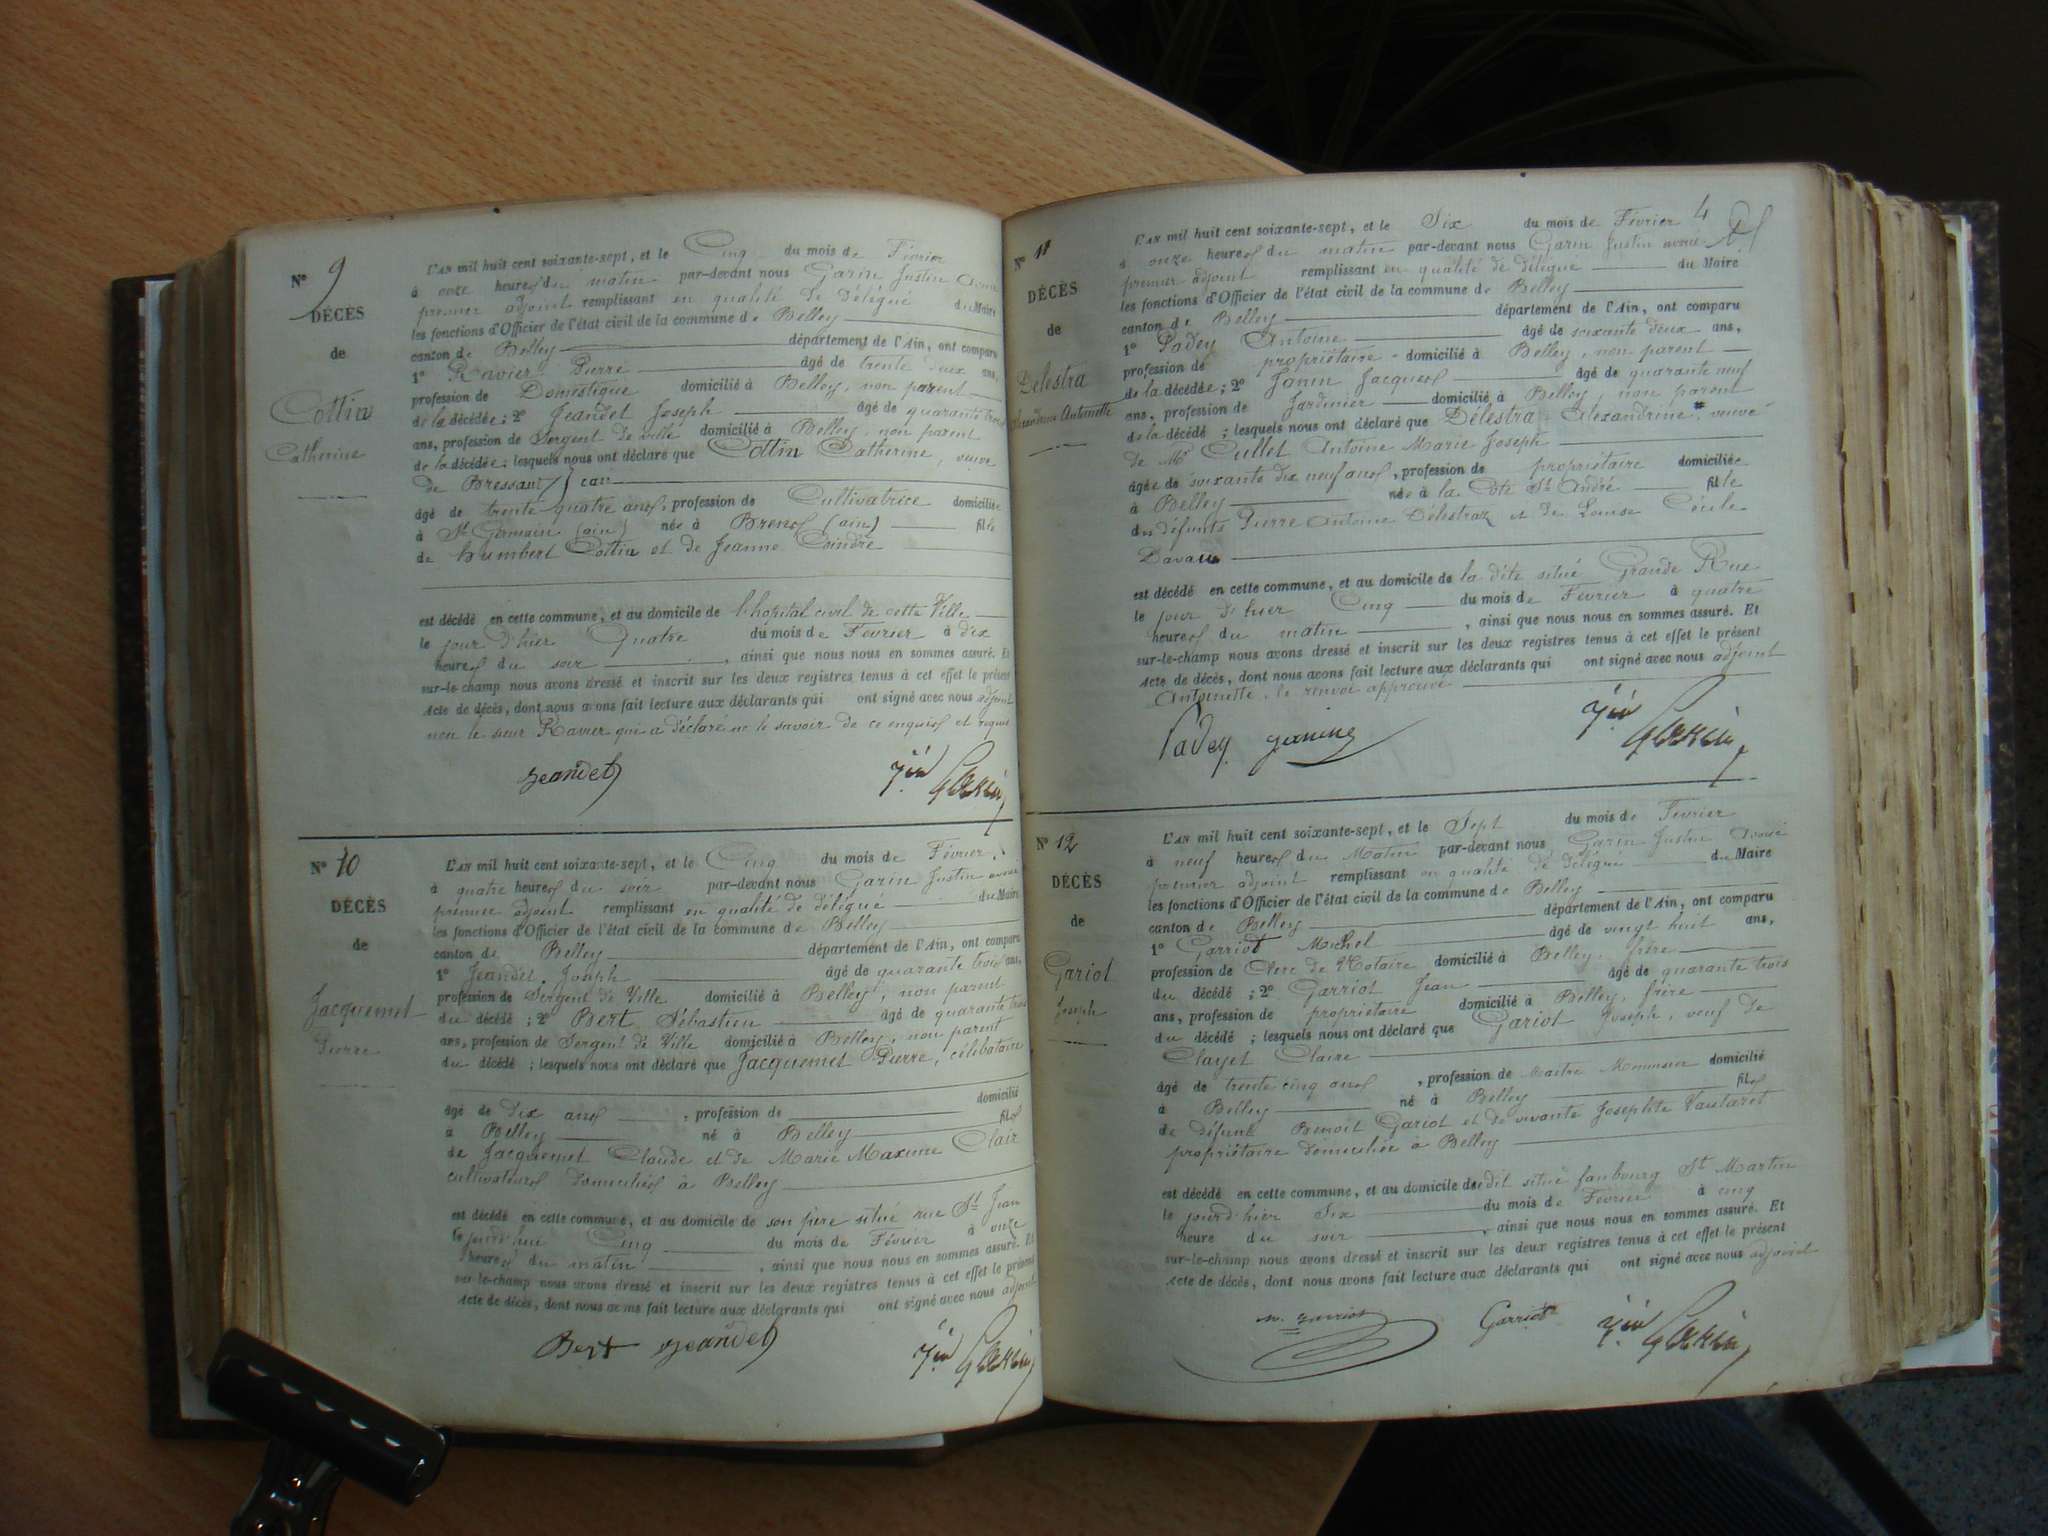 N° 9
DÉCÈS
de
Cottin
Catherine
L'AN mil huit cent soixante-sept, et le Cinq du mois de Février
à onze heures du matin par-devant nous Garin Justin avoué
premier adjoint remplissant en qualité de Délégué du Maire
les fonctions d'Officier de l'état civil de la commune de Belley
canton de Belley département de l'Ain, ont comparu
1° Ravier Pierre âgé de trente deux ans,
profession de Domestique domicilié à Belley, non parent
de la décédée; 2° Jeandet Joseph âgé de quarante trois
ans, profession de Sergent de ville domicilié à Belley, non parent
de la décédée; lesquels nous ont déclaré que Cottin Catherine, veuve
de Bressant
âgé de trente quatre ans, profession de Cultivatrice domiciliée
à St Germain (ain) née à Brens (ain) fille
de Humbert Cottin et de Jeanne Coindre
est décédé en cette commune, et au domicile de l'hopital civil de cette Ville
le jour d'hier Quatre du mois de Février à dix
heures du soir, ainsi que nous nous en sommes assuré. Et
sur-le-champ nous avons dressé et inscrit sur les deux registres tenus à cet effet le présent
acte de décès, dont nous avons fait lecture aux déclarants qui ont signé avec nous adjoint
non le sieur Ravier qui a déclaré ne le savoir de ce enquis et requis
Jeandet Jin Garin
N° 10
DÉCÈS
de
Jacquemet
Pierre
L'AN mil huit cent soixante-sept, et le Cinq du mois de Février
à quatre heures du soir par-devant nous Garin Justin avoué
premier adjoint remplissant en qualité de délégué du Maire
les fonctions d'Officier de l'état civil de la commune de Belley
canton de Belley département de l'Ain, ont comparu
1° Jeandet Joseph âgé de quarante trois ans,
profession de Sergent de Ville domicilié à Belley, non parent
du décédé; 2° Bert Sébastien âgé de quarante trois
ans, profession de Sergent de Ville domicilié à Belley, non parent
du décédé; lesquels nous ont déclaré que Jacquemet Pierre, célibataire
âgé de dix ans, profession de domicilié
à Belley né à Belley fils
de Jacquemet Claude et de Marie Maxime Clair
cultivateurs domiciliés à Belley
est décédé en cette commune, et au domicile de son père situé rue St Jean
le jourd'hui Cinq du mois de Février à onze
heures du matin, ainsi que nous nous en sommes assuré. Et
sur-le-champ nous avons dressé et inscrit sur les deux registres tenus à cet effet le présent
acte de décès, dont nous avons fait lecture aux déclarants qui ont signé avec nous adjoint
Bert Jeandet Jin Garin
4
N° 11
DÉCÈS
de
Délestra
Alexandrine Antoinette
L'AN mil huit cent soixante-sept, et le Six du mois de Février
à onze heures du matin par-devant nous Garin Justin avoué
premier adjoint remplissant en qualité de délégué du Maire
les fonctions d'Officier de l'état civil de la commune de Belley
canton de Belley département de l'Ain, ont comparu
1° Padey Antoine âgé de soixante deux ans,
profession de propriétaire domicilié à Belley, non parent
de la décédée; 2° Janin Jacques âgé de quarante neuf
ans, profession de Jardinier domicilié à Belley, non parent
de la décédé; lesquels nous ont déclaré que Délestra Alexandrine * veuve
de Mr Cullet Antoine Marie Joseph
âgée de soixante dix neuf ans, profession de propriétaire domiciliée
à Belley née à la Côte St André fille
des défunts Pierre Antoine Délestraz et de Louise Cécile
Davaux
est décédé en cette commune, et au domicile de la dite situé Grande Rue
le jour d'hier Cinq du mois de Février à quatre
heures du matin, ainsi que nous nous en sommes assuré. Et
sur-le-champ nous avons dressé et inscrit sur les deux registres tenus à cet effet le présent
acte de décès, dont nous avons fait lecture aux déclarants qui ont signé avec nous adjoint
Antoinette, le renvoi approuvé
Padey Janin Jin Garin
N° 12
DÉCÈS
de
Gariot
Joseph
L'AN mil huit cent soixante-sept, et le Sept du mois de Février
à neuf heures du Matin par-devant nous Garin Justin avoué
premier adjoint remplissant en qualité de délégué du Maire
les fonctions d'Officier de l'état civil de la commune de Belley
canton de Belley département de l'Ain, ont comparu
1° Garriot Michel âgé de vingt huit ans,
profession de Clerc de Notaire domicilié à Belley, frère
du décédé; 2° Garriot Jean âgé de quarante trois
ans, profession de propriétaire domicilié à Belley, frère
du décédé; lesquels nous ont déclaré que Gariot Joseph, veuf de
Clayet Claire
âgé de trente cinq ans, profession de Maitre Menuisier domicilié
à Belley né à Belley fils
de défunt Benoit Gariot et de vivante Josephte Vautaret
propriétaire domiciliée à Belley
est décédé en cette commune, et au domicile du dit situé faubourg St Martin
le jour d'hier Six du mois de Février à cinq
heure du soir, ainsi que nous nous en sommes assuré. Et
sur-le-champ nous avons dressé et inscrit sur les deux registres tenus à cet effet le présent
acte de décès, dont nous avons fait lecture aux déclarants qui ont signé avec nous adjoint
m. garriot Garriot Jin Garin